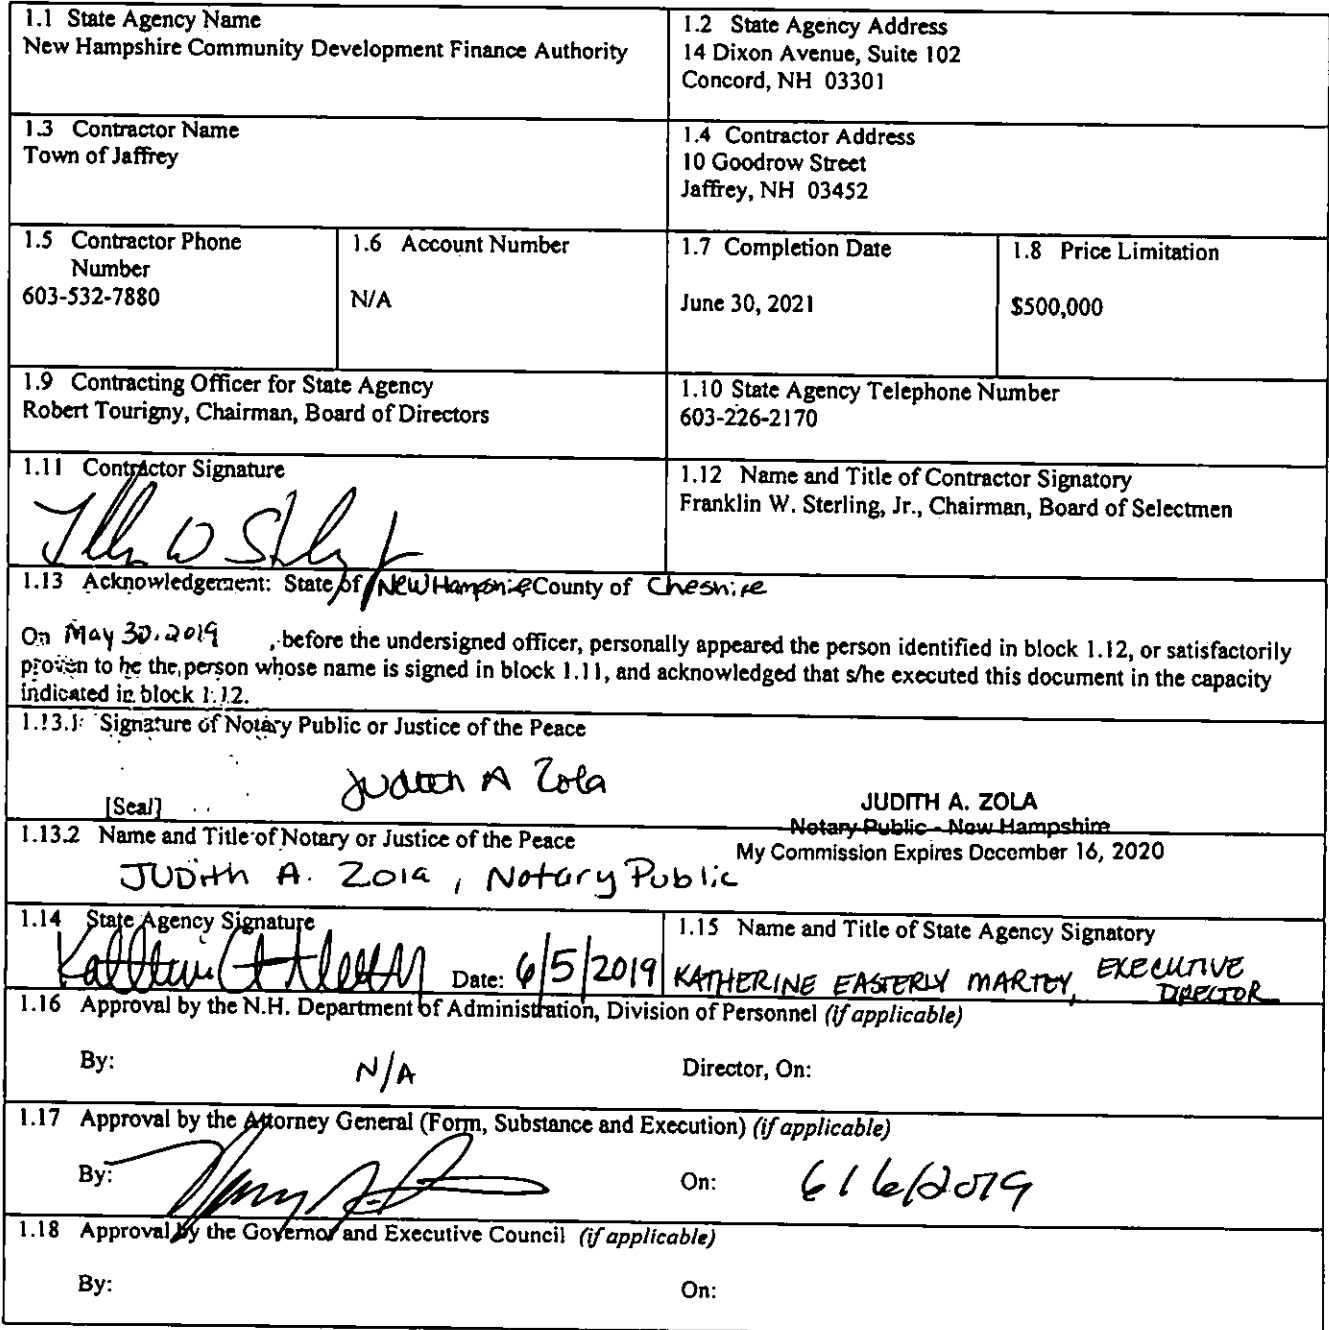 1.1 State Agency Name
New Hampshire Community Development Finance Authority
1.2 State Agency Address
14 Dixon Avenue, Suite 102
Concord, NH 03301
1.3 Contractor Name
Town of Jaffrey
1.4 Contractor Address
10 Goodrow Street
Jaffrey, NH 03452
1.5 Contractor Phone
Number
603-532-7880
1.6 Account Number
N/A
1.7 Completion Date
June 30, 2021
1.8 Price Limitation
$500,000
1.9 Contracting Officer for State Agency
Robert Tourigny, Chairman, Board of Directors
1.10 State Agency Telephone Number
603-226-2170
1.11 Contractor Signature
1.12 Name and Title of Contractor Signatory
Franklin W. Sterling, Jr., Chairman, Board of Selectmen
1.13 Acknowledgement: State of New Hampshire County of Cheshire
On May 30, 2019 , before the undersigned officer, personally appeared the person identified in block 1.12, or satisfactorily
proven to be the person whose name is signed in block 1.11, and acknowledged that s/he executed this document in the capacity
indicated in block 1.12.
1.13.1 Signature of Notary Public or Justice of the Peace
Judith A Zola
[Seal]
JUDITH A. ZOLA
Notary Public - New Hampshire
My Commission Expires December 16, 2020
1.13.2 Name and Title of Notary or Justice of the Peace
JUDith A. Zola, Notary Public
1.14 State Agency Signature
Date: 6/5/2019
1.15 Name and Title of State Agency Signatory
KATHERINE EASTERLY MARTEY, EXECUTIVE
DIRECTOR
1.16 Approval by the N.H. Department of Administration, Division of Personnel (if applicable)
By: N/A Director, On:
1.17 Approval by the Attorney General (Form, Substance and Execution) (if applicable)
By: On: 6/6/2019
1.18 Approval by the Governor and Executive Council (if applicable)
By: On: